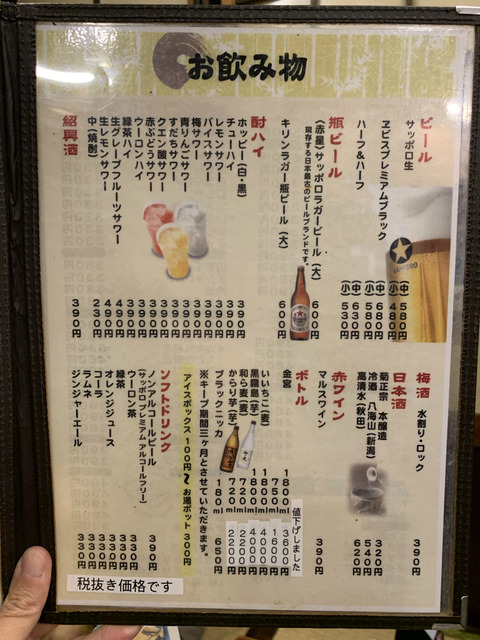 お飲み物
ビール
サッポロ生 (中)580円
(小)480円
ヱビスプレミアムブラック (中)680円
(小)580円
ハーフ&ハーフ (中)630円
(小)530円
瓶ビール
(赤星)サッポロラガービール(大) 600円
現存する日本最古のビールブランドです。
キリンラガー瓶ビール(大) 600円
酎ハイ
ホッピー(白・黒) 390円
チューハイ 390円
レモンサワー 390円
バイスサワー 390円
梅サワー 390円
青りんごサワー 390円
すだちサワー 390円
クエン酸サワー 390円
赤ぶどうサワー 390円
ウーロンハイ 390円
緑茶ハイ 390円
生グレープフルーツサワー 490円
生レモンサワー 490円
中(焼酎) 230円
紹興酒 390円
梅酒 水割り・ロック 390円
日本酒
菊正宗 本醸造 320円
冷酒 八海山(新潟) 540円
高清水(秋田) 620円
赤ワイン
マルスワイン 390円
ボトル
金宮
いいちこ(麦)
黒霧島(芋)
和ら麦(麦)
からり芋(芋)
ブラックニッカ 180ml 650円
値下げしました
※キープ期間三ヶ月とさせていただきます。
アイスボックス 100円〜お湯ポット 300円
ソフトドリンク
ノンアルコールビール 390円
(サッポロプレミアムアルコールフリー)
ウーロン茶 330円
緑茶 330円
オレンジジュース 330円
コーラ 330円
ラムネ 330円
ジンジャーエール 330円
税抜き価格です